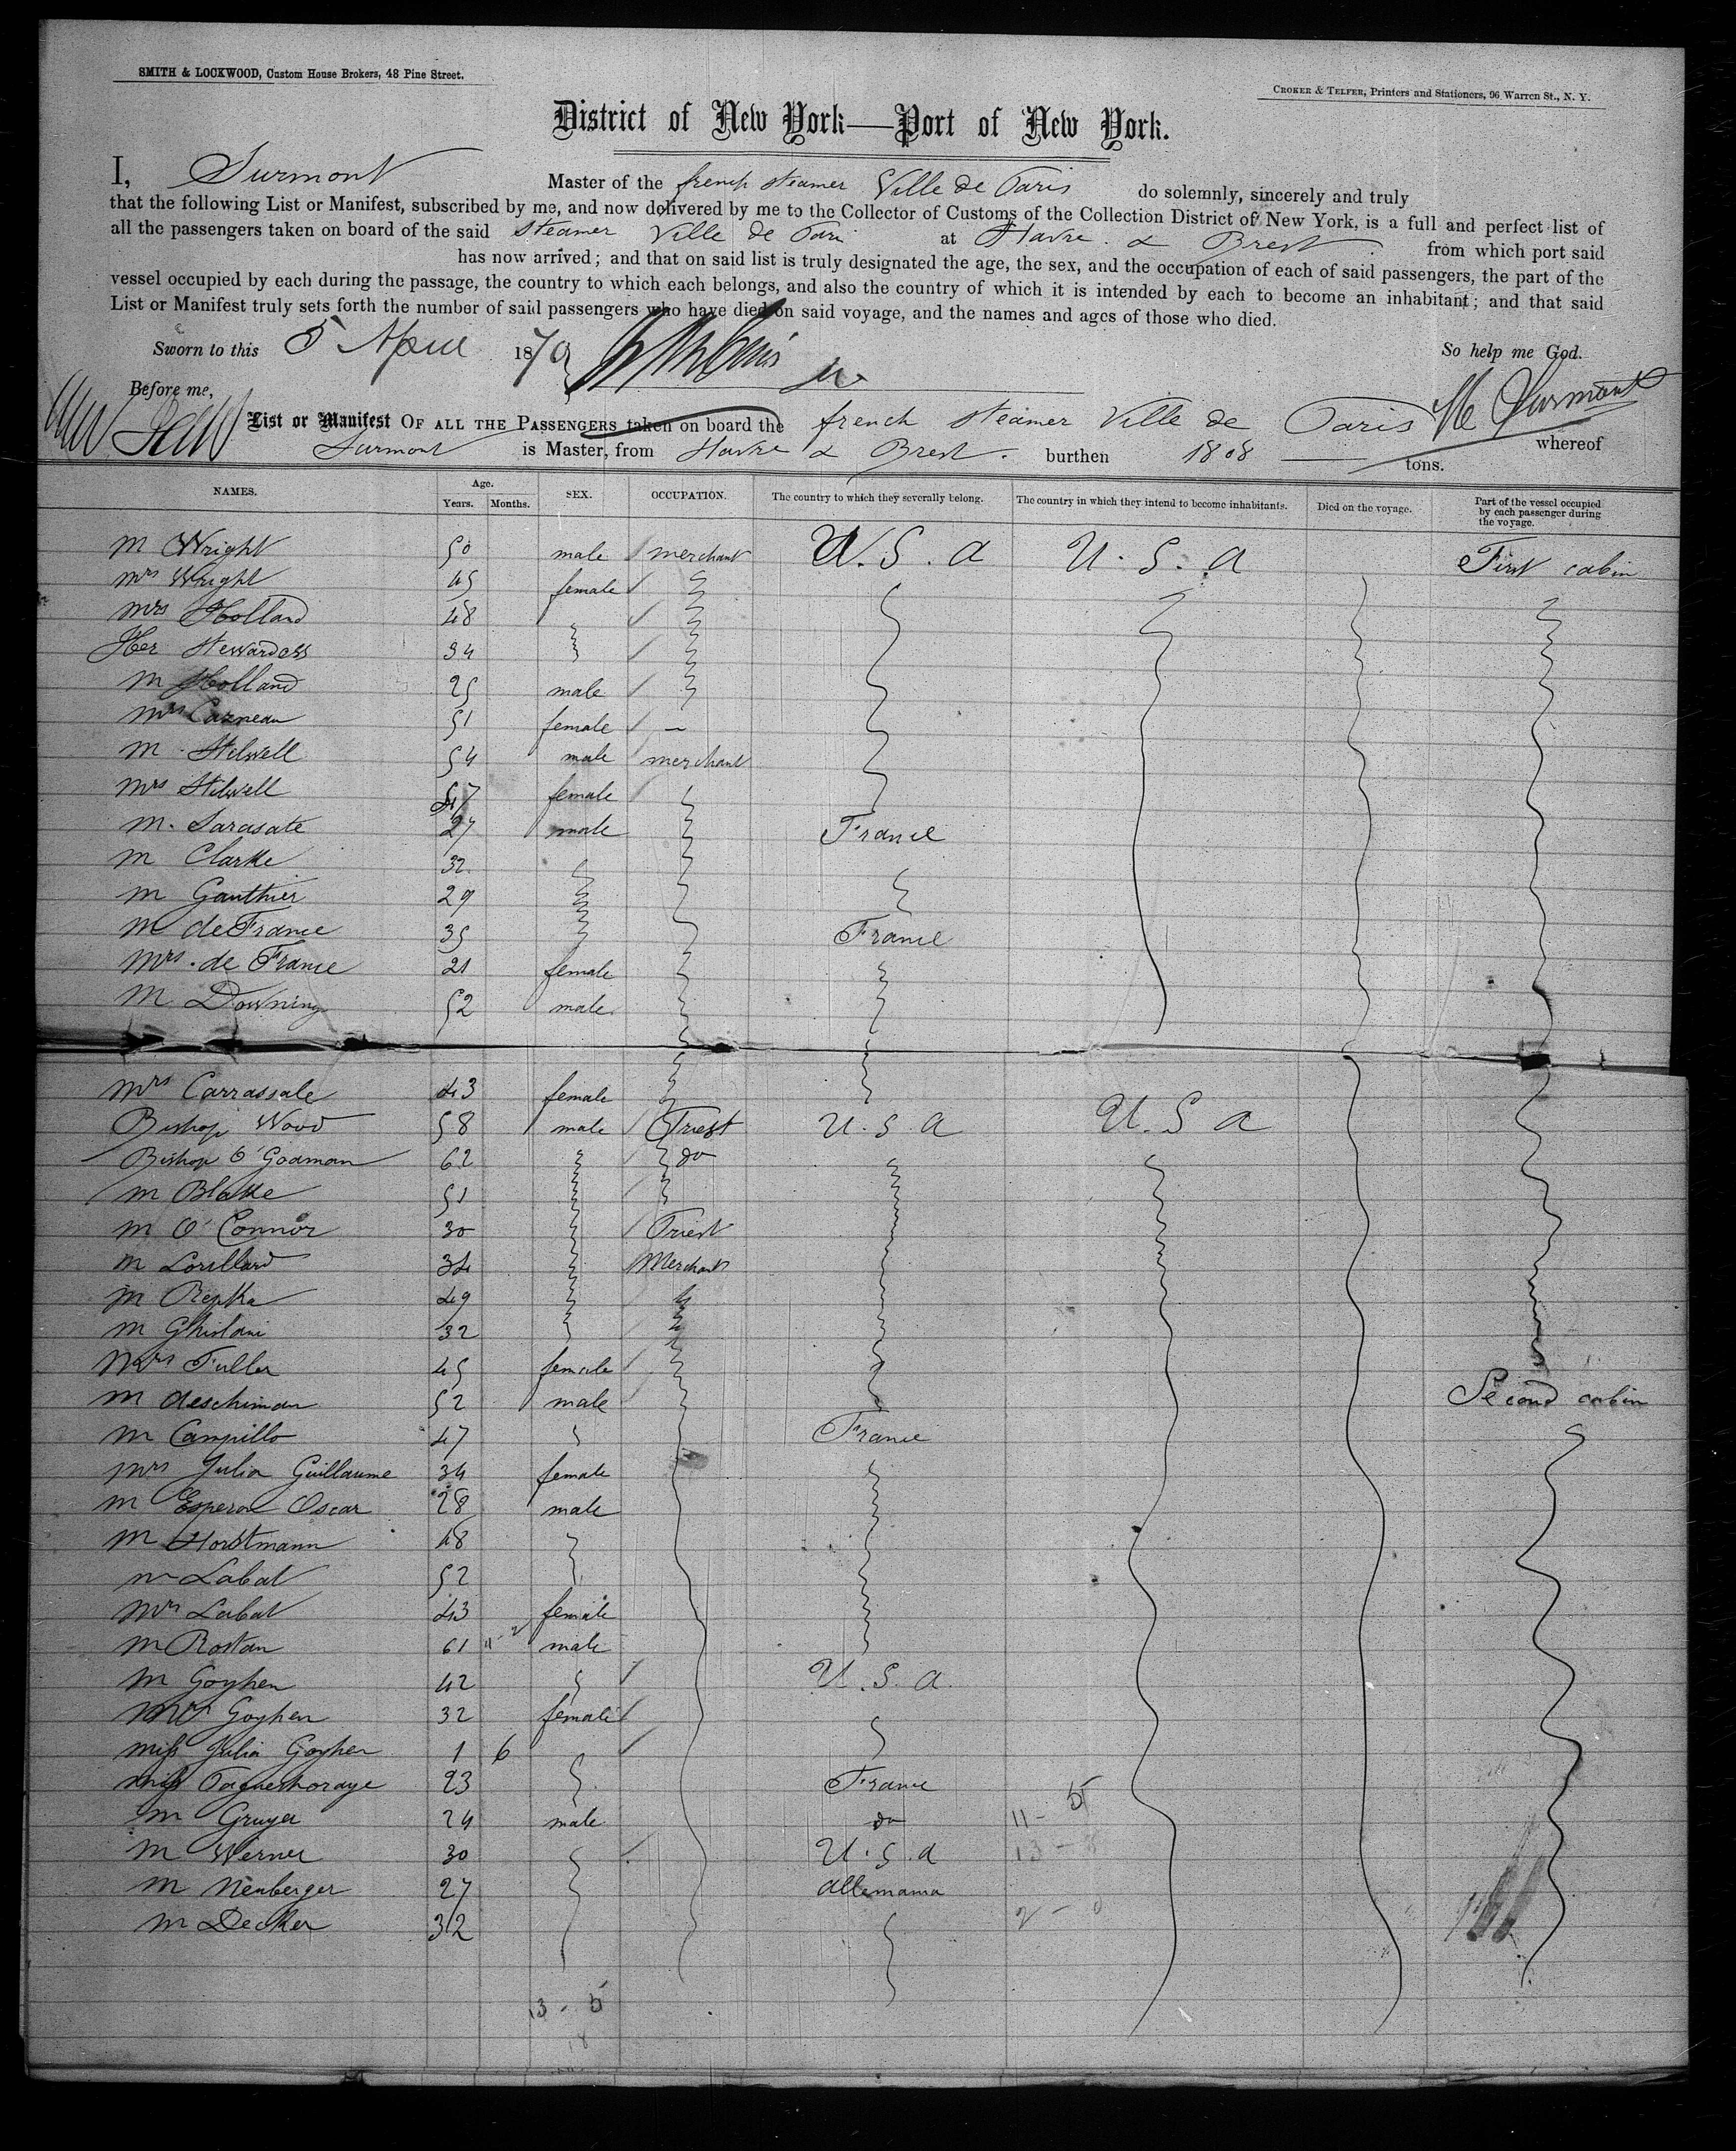 SMITH & LOCKWOOD, Custom House Brokers, 48 Pine Street.
CROKER & TELFER, Printers and Stationers, 96 Warren St., N. Y.
District of New York—Port of New York.
I, Surmont Master of the french steamer Ville de Paris do solemnly, sincerely and truly
that the following List or Manifest, subscribed by me, and now delivered by me to the Collector of Customs of the Collection District of New York, is a full and perfect list of
all the passengers taken on board of the said steamer Ville de Pari at Havre & Brest from which port said
has now arrived; and that on said list is truly designated the age, the sex, and the occupation of each of said passengers, the part of the
vessel occupied by each during the passage, the country to which each belongs, and also the country of which it is intended by each to become an inhabitant; and that said
List or Manifest truly sets forth the number of said passengers who have died on said voyage, and the names and ages of those who died.
Sworn to this 5 April 1870 So help me God.
Before me, Surmont
List or Manifest OF ALL THE PASSENGERS taken on board the french steamer Ville de Paris whereof
Surmont is Master, from Havre & Brest. burthen 1808 tons.
NAMES. Age. Years. Months. SEX. OCCUPATION. The country to which they severally belong. The country in which they intend to become inhabitants. Died on the voyage. Part of the vessel occupied by each passenger during the voyage.
M Wright 50 male merchant U.S.A U.S.A First cabin
Mrs Wright 45 female
Mrs Holland 48
Her Stewardess 34
M Holland 25 male
Mrs Cazneau 51 female –
M Stilwell 54 male merchant
Mrs Stilwell 47 female
M. Sarasate 27 male France
M Clarke 32
M Gauthier 29
M de France 35 France
Mrs. de France 21 female
M Downing 52 male
Mrs Carrassale 43 female
Bishop Wood 58 male Priest U.S.A U.S.A
Bishop O Goaman 62 do
M Blake 51
M O'Connor 30 Priest
M Lorillard 34 Merchant
M Repka 49
M Ghislani 32
Mrs Fuller 45 female
M Aeschiman 52 male Second cabin
M Campillo 47 France
Mrs Julia Guillaume 34 female
M Esperon Oscar 28 male
M Horstmann 48
M Labat 52
Mrs Labat 43 female
M Rostan 61 male
M Goyhen 42 U.S.A.
Mrs Goyhen 32 female
Miss Julia Goyhen 1 6
Miss 23 France
M Gruyer 24 male do 11 - 5
M Werner 30 U.S.A 13 - 8
M Nenberger 27 Allemania
M Decker 32 2 - 0
13 - 5
18